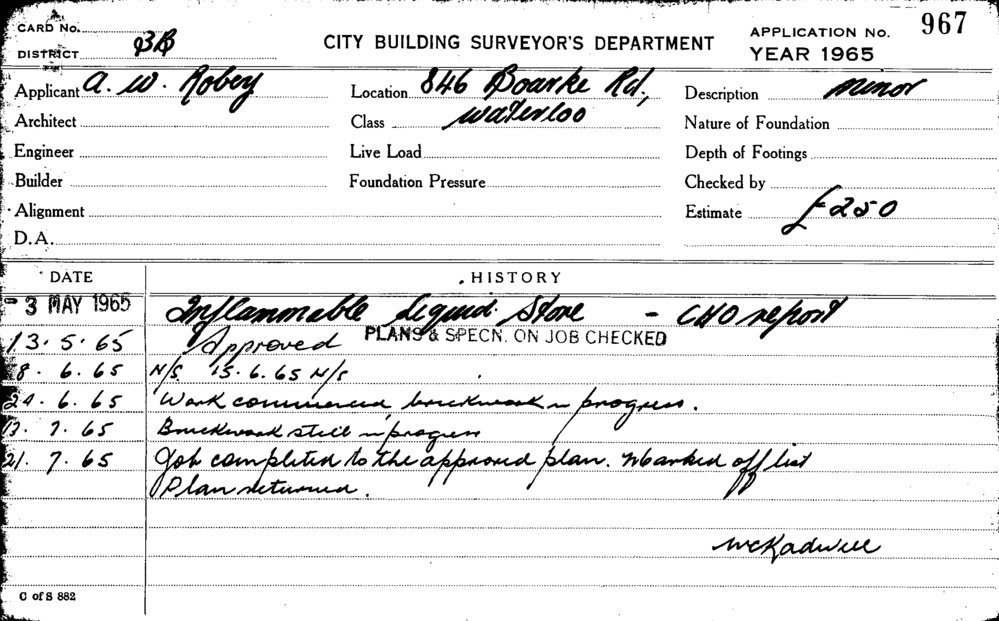 CARD No.
DISTRICT 3B
CITY BUILDING SURVEYOR'S DEPARTMENT
APPLICATION No. 967
YEAR 1965
Applicant A. W. Robey
Location 846 Bourke Rd.,
Description minor
Architect
Class Waterloo
Nature of Foundation
Engineer
Live Load
Depth of Footings
Builder
Foundation Pressure
Checked by
Alignment
Estimate £250
D.A.
DATE HISTORY
- 3 MAY 1965 Inflammable Liquid Store - CHO report
13.5.65 Approved PLANS & SPECN. ON JOB CHECKED
8.6.65 N/S. 15.6.65 N/S
24.6.65 Work commenced brickwork in progress.
13.7.65 Brickwork still in progress
21.7.65 Job completed to the approved plan. Marked off list
Plan returned.
C of S 882